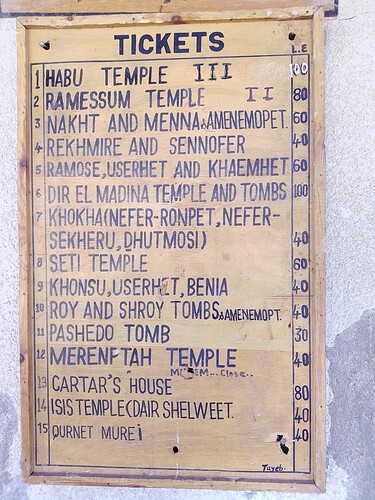 TICKETS
L.E
1 HABU TEMPLE III 100
2 RAMESSUM TEMPLE II 80
3 NAKHT AND MENNA &AMENEMOPET. 60
4 REKHMIRE AND SENNOFER 40
5 RAMOSE,USERHET AND KHAEMHET 60
6 DIR EL MADINA TEMPLE AND TOMBS 100
7 KHOKHA(NEFER-RONPET,NEFER-
SEKHERU,DHUTMOSI) 40
8 SETI TEMPLE 60
9 KHONSU,USERHET,BENIA 40
10 ROY AND SHROY TOMBS,&AMENEMOPT. 40
11 PASHEDO TOMB 30
12 MERENFTAH TEMPLE 40
Close..
13 CARTAR'S HOUSE 80
14 ISIS TEMPLE(DAIR SHELWEET. 40
15 QURNET MUREi 40
Tayeb.